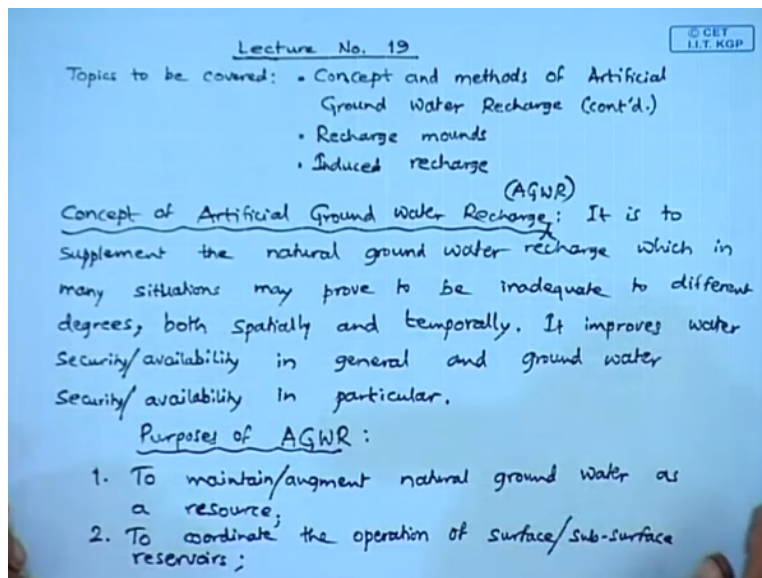 © CET
I.I.T. KGP
Lecture No. 19
Topics to be covered: • Concept and methods of Artificial
Ground Water Recharge (cont'd.)
• Recharge mounds
• Induced recharge
(AGWR)
Concept of Artificial Ground Water Recharge: It is to
supplement the natural ground water recharge which in
many situations may prove to be inadequate to different
degrees, both spatially and temporally. It improves water
security/availability in general and ground water
security/availability in particular.
Purposes of AGWR:
1. To maintain/augment natural ground water as
a resource;
2. To coordinate the operation of surface/sub-surface
reservoirs;